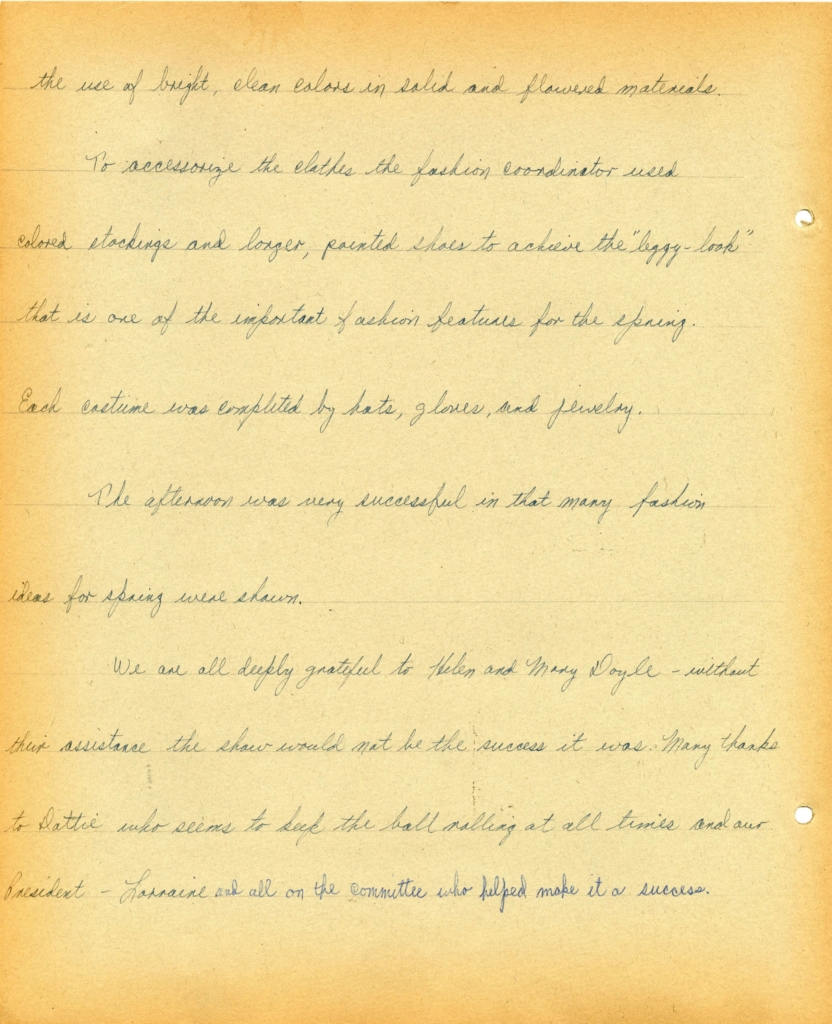 the use of bright, clean colors in solid and flowered materials.
To accessorize the clothes the fashion coordinator used
colored stockings and longer, pointed shoes to achieve the "leggy-look"
that is one of the important fashion features for the spring.
Each costume was completed by hats, gloves, and jewelry.
The afternoon was very successful in that many fashion
ideas for spring were shown.
We are all deeply grateful to Helen and Mary Doyle - without
their assistance the show would not be the success it was. Many thanks
to Dottie who seems to keep the ball rolling at all times and our
President - Lorraine and all on the committee who helped make it a success.